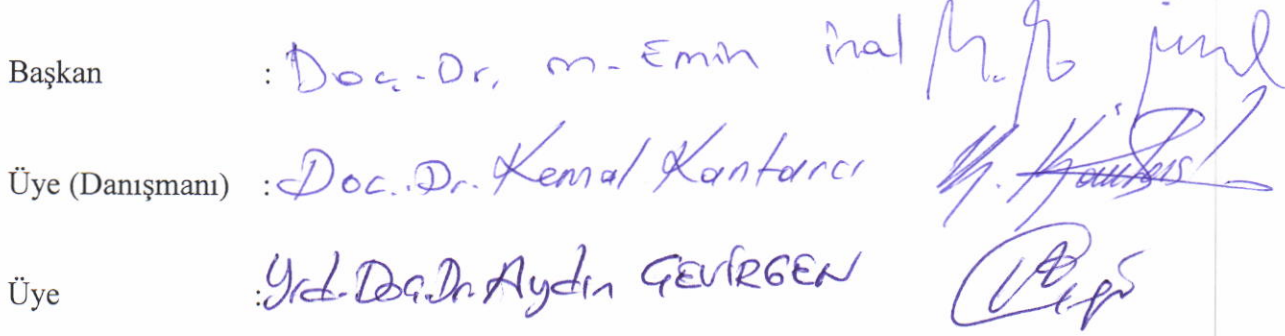 Başkan : Doç. Dr. M. Emin İnal
Üye (Danışmanı) : Doc. Dr. Kemal Kantarcı
Üye : Yrd. Doç. Dr. Aydın ÇEVİRGEN